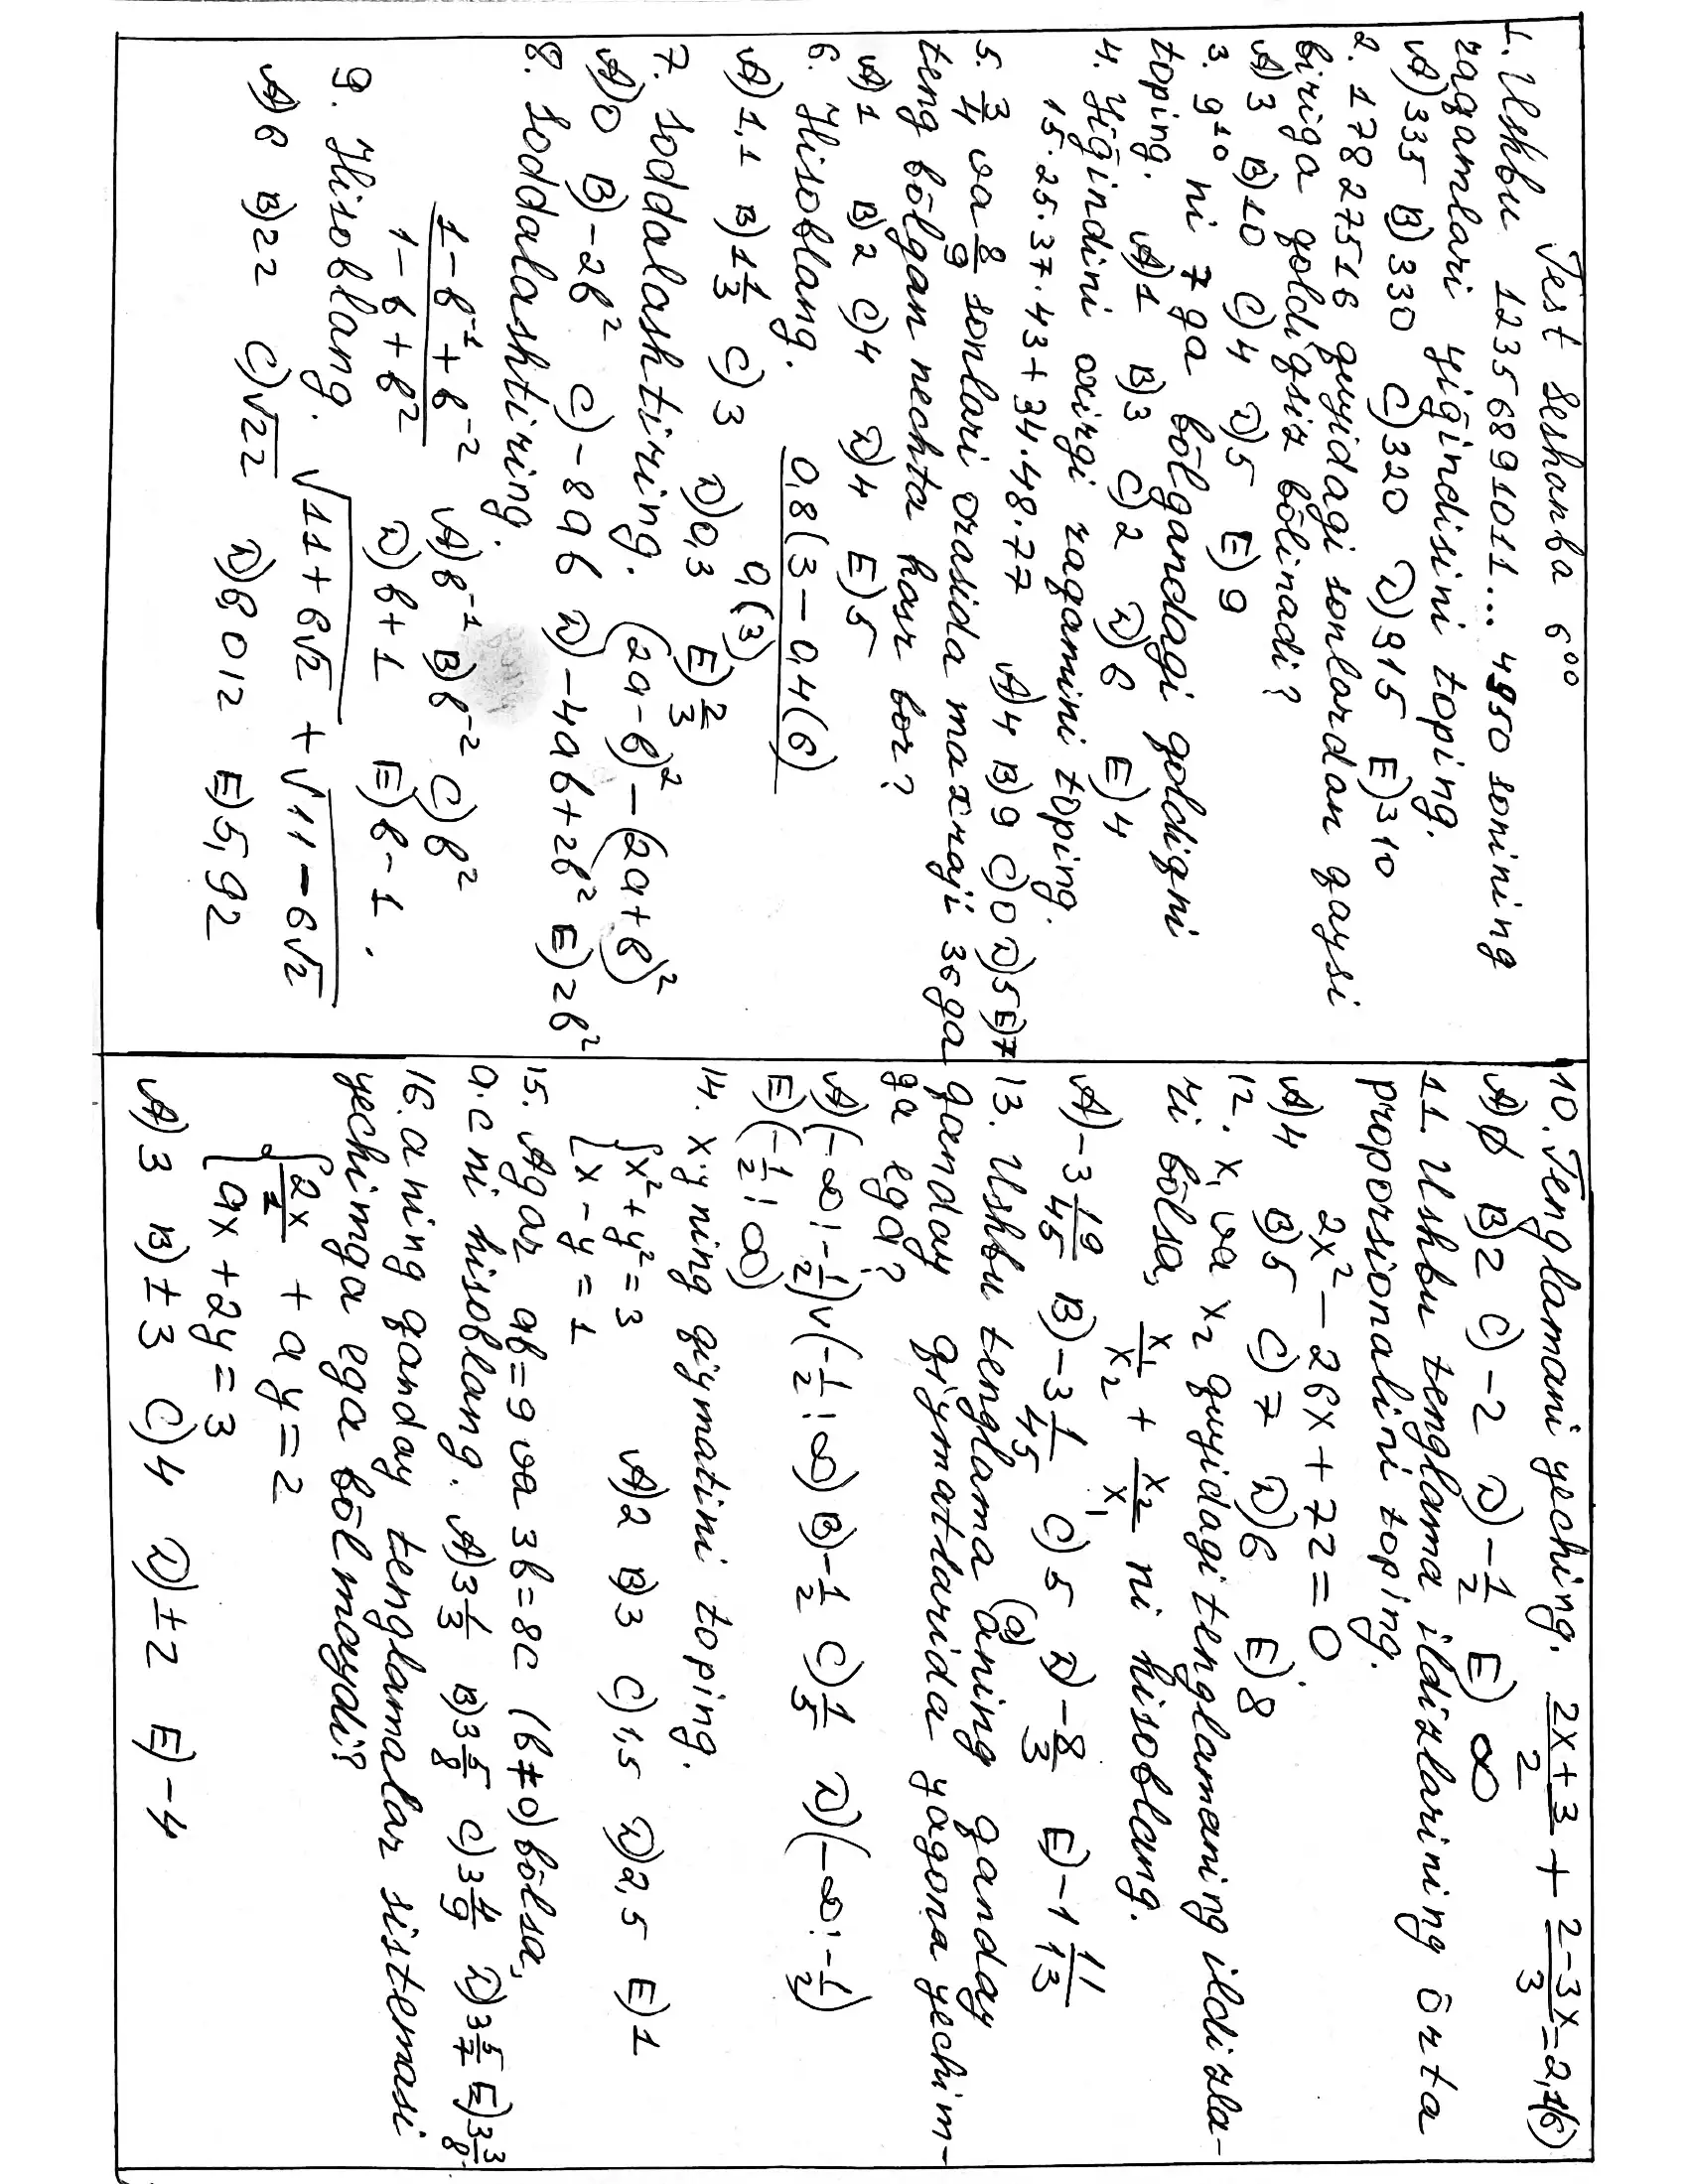 Test Seshanba 6⁰⁰
1. Ushbu 12356891011... 4950 sonining
raqamlari yiğindisini toping.
A) 335 B) 330 C) 320 D) 315 E) 310
2. 178 27516 quyidagi sonlardan qaysi
biriga qoldiqsiz bōlinadi?
A) 3 B) 10 C) 4 D) 5 E) 9
3. 9¹⁰ ni 7 ga bōlgandagi qoldiqni
toping. A) 1 B) 3 C) 2 D) 6 E) 4
4. Yiğindini oxirgi raqamini toping.
15·25·37·43+34·48·77 A) 4 B) 9 C) 0 D) 5 E) 7
5. 3/4 va 8/9 sonlari orasida maxraji 36 ga
teng bōlgan nechta kasr bor?
A) 1 B) 2 C) 4 D) 4 E) 5
6. Hisoblang. 0,8(3 – 0,4(6) / 0,(3)
A) 1,1 B) 1 1/3 C) 3 D) 0,3 E) 2/3
7. Soddalashtiring. (2a-b)² – (2a+b)²
A) 0 B) -2b² C) -8ab D) -4ab+2b² E) 2b²
8. Soddalashtiring.
1 – b⁻¹ + b⁻² / 1 – b + b² A) b⁻¹ B) b⁻² C) b²
D) b+1 E) b-1.
9. Hisoblang. √(11+6√2) + √(11-6√2)
A) 6 B) 22 C) √22 D) 6,012 E) 5,92
10. Tenglamani yeching. 2x+3 / 2 + 2-3x / 3 = 2,1(6)
A) ∅ B) 2 C) -2 D) -1/2 E) ∞
11. Ushbu tenglama ildizlarining ōrta
proporsionalini toping.
2x² – 26x + 72 = 0
A) 4 B) 5 C) 7 D) 6 E) 8
12. x₁ va x₂ quyidagi tenglamaning ildizla-
ri bōlsa, x₁/x₂ + x₂/x₁ ni hisoblang.
A) -3 19/45 B) -3 1/45 C) 5 D) -8/3 E) -1 11/13
13. Ushbu tenglama (a) aning qanday
qanday qiymatlarida yagona yechim-
ga ega?
A) (-∞; -1/2) ∨ (-1/2; ∞) B) -1/2 C) 1/5 D) (-∞; -1/2)
E) (-1/2; ∞)
14. x·y ning qiymatini toping.
{x² + y² = 3
{x – y = 1 A) 2 B) 3 C) 1,5 D) 2,5 E) 1
15. Agar ab=9 va 3b=8c (b≠0) bōlsa,
a·c ni hisoblang. A) 3 1/3 B) 3 5/8 C) 3 4/9 D) 3 5/7 E) 3 3/8
16. a ning qanday tenglamalar sistemasi
yechimga ega bōlmaydi?
{2x/1 + ay = 2
{ax + 2y = 3
A) 3 B) ±3 C) 4 D) ±2 E) -4